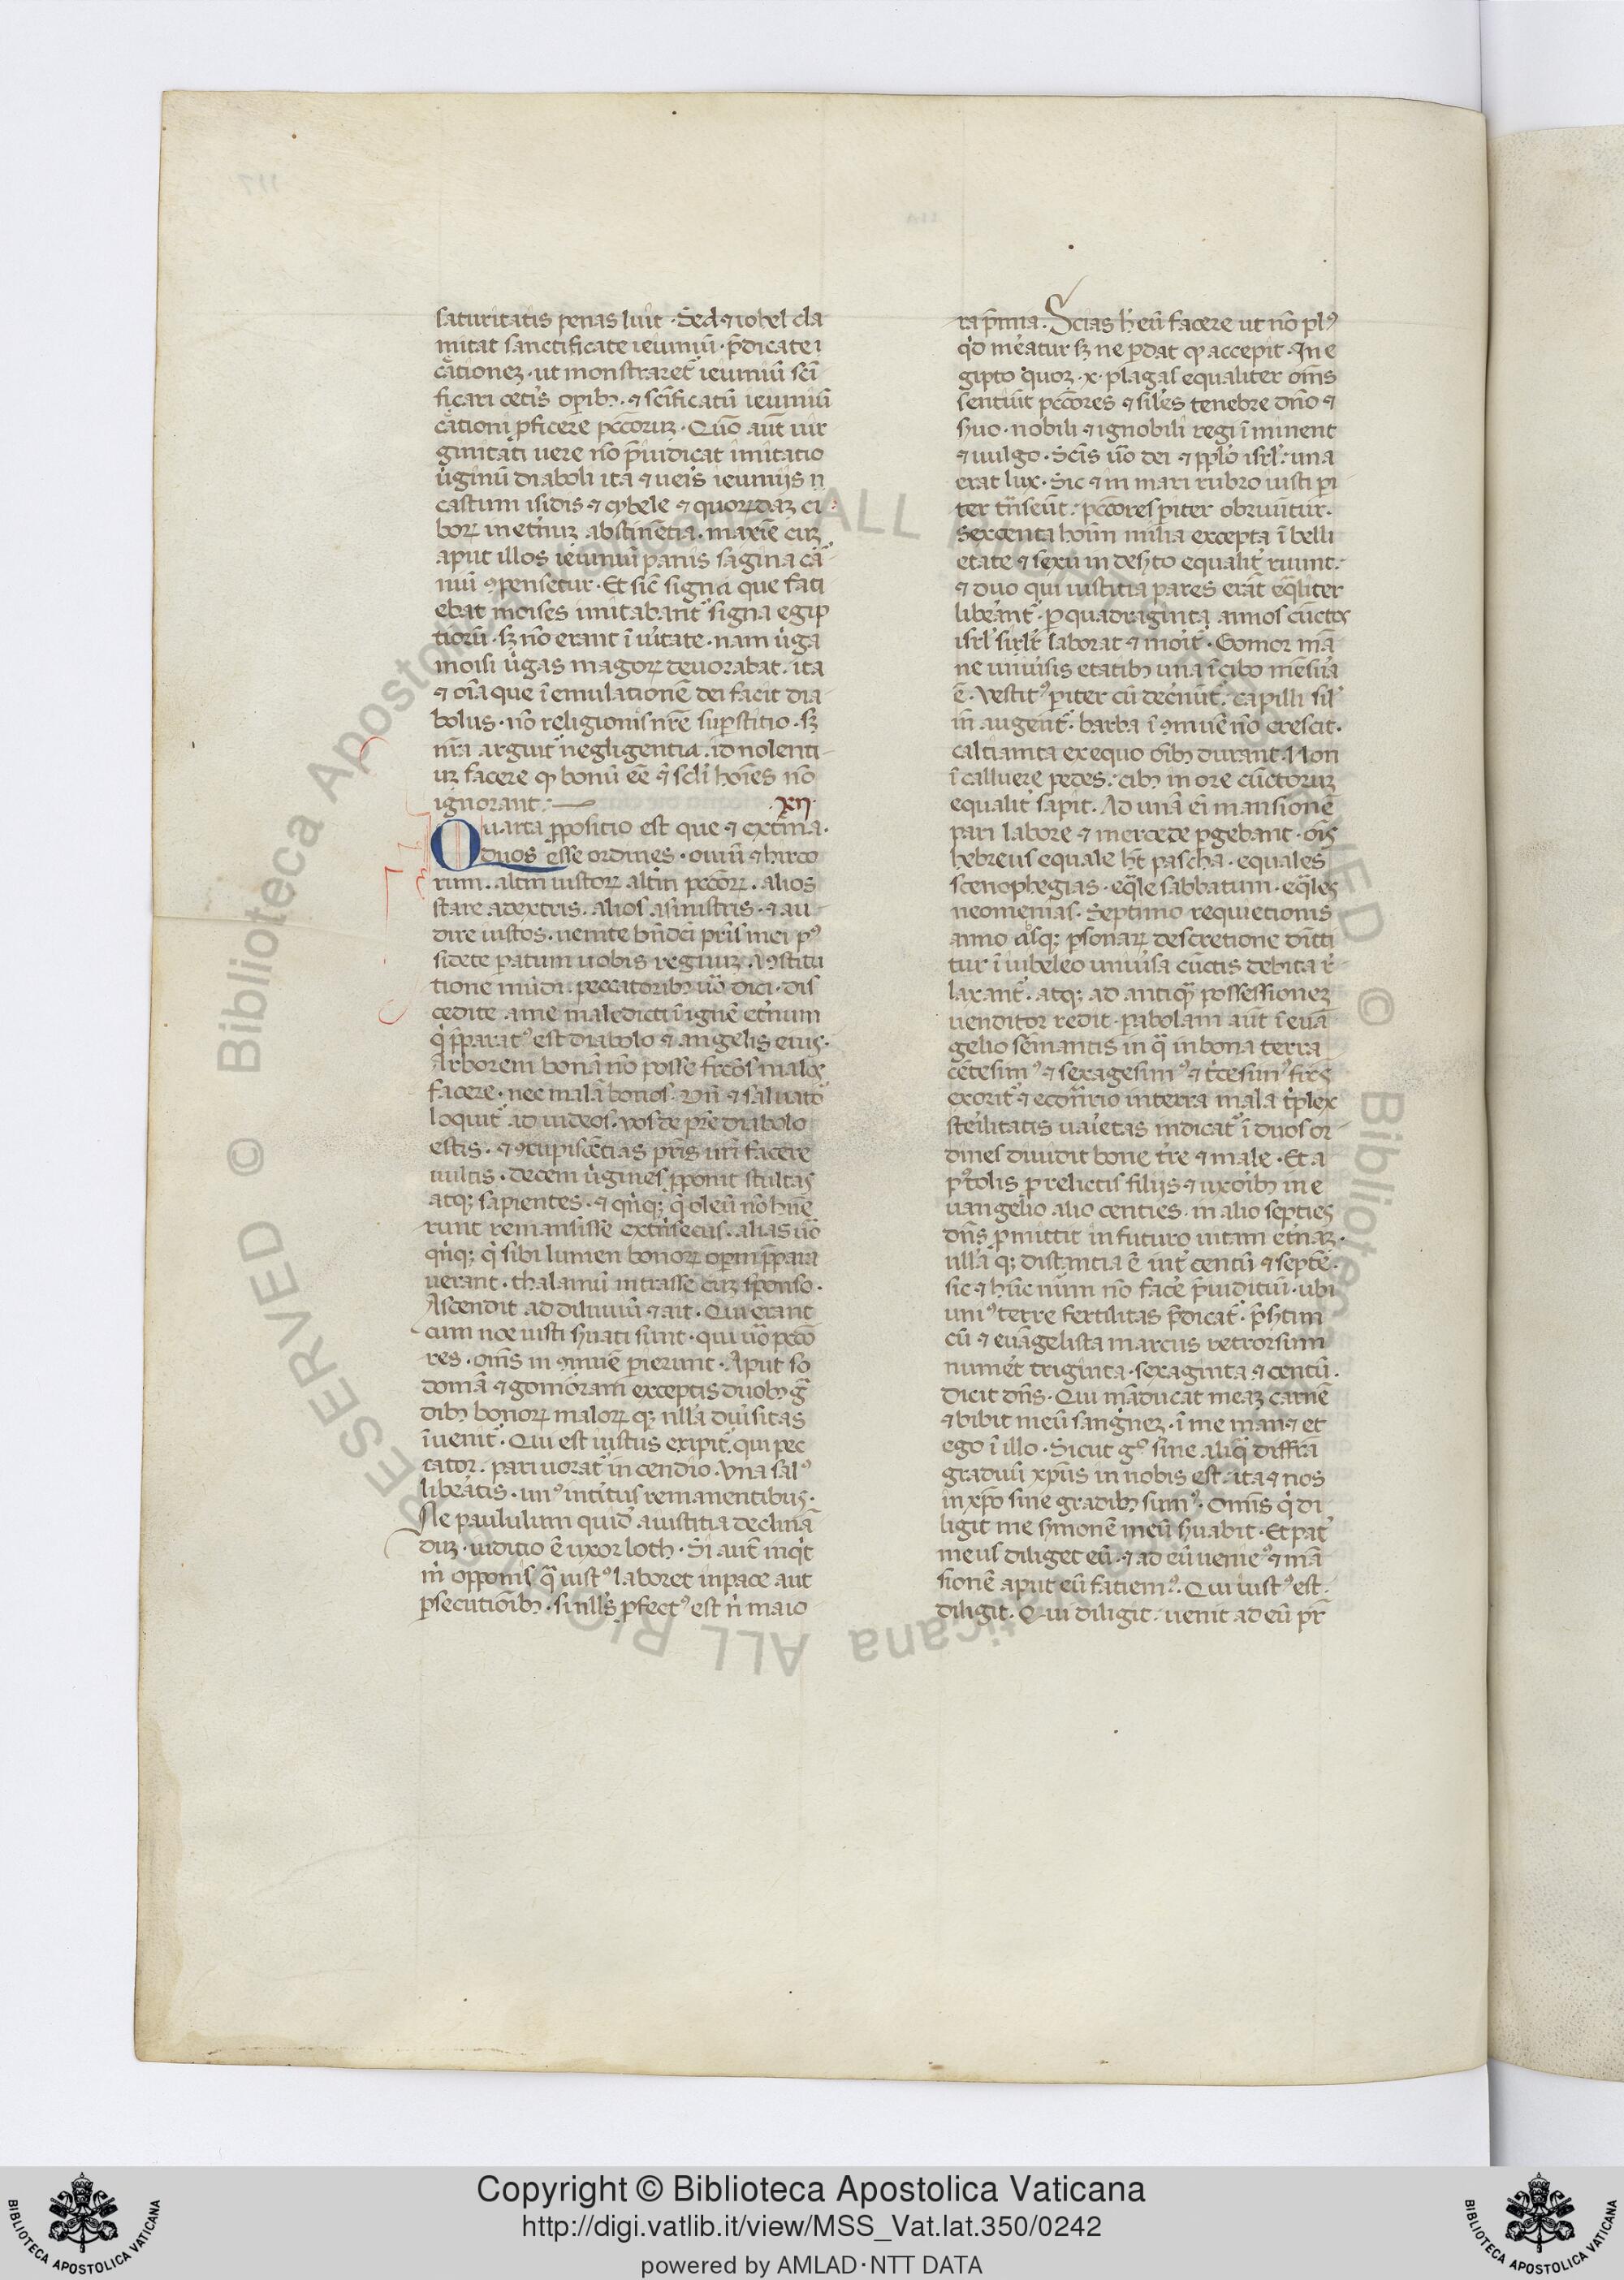 saturitatis penas luit · Sed ⁊ iohel cla
mitat sanctificate ieumiū · p̄dicate
cātionez · ut monstraret ieiuniū scī
ficari cet̄is op̄ibꝫ · ⁊ scīficatū ieiuniū
cātioni ꝓficere pccōruz · Quō aūt uir
ginitati uere nō p̄iudicat imitatio
ūginū diaboli ita ⁊ ueīs ieiuniis
castum isidis ⁊ cybele ⁊ quorūdaz ci
boꝝ inet̄nuz abstinētia · maxīe cuz
aput illos ieiuniū panis sagina cā
niū ꝯpensetur · Et sic̄ signa que faci
ebat moises imitabant᷑ signa egip
tiorū · sꝫ nō erant ī ūitate · nam ūga
moisi ūgas magoꝝ deuorabat · ita
⁊ oīa que ī emulationē dei facit dia
bolus · nō religionis nr̄e sup̄stitio · sꝫ
nr̄a arguit᷑ negligentia · id nolenti
uz facere ꝙ bonū eē ⁊ scl̄i hoīes nō
ignorant · xii ·
Quarta ꝓpositio est que ⁊ extīma ·
duos esse ordines · ouiū ⁊ hirco
rum · altm̄ iustoꝝ altm̄ pccōꝝ · alios
stare adextris · alios asinistris · ⁊ au
dire iustos · uenite bn̄dci pr̄is mei pꝰ
sidete paratum uobis regnuz · a ꝯstitu
tione mūdi · peccatoribꝫ uō dici · dis
cedite ame maledicti ī ignē et̄num
q̄ p̄paratꝰ est diabolo ⁊ angelis eius ·
Arborem bonā nō posse fruct̄s malos
facere · nec malā bonos · Vn̄ ⁊ saluatō
loquit᷑ ad iudeos · vos de pr̄e diabolo
estis · ⁊ ꝯcupiscētias pr̄is ur̄i facere
uultis · decem ūgines ꝓponit stultas
atqꝫ sapientes · ⁊ qnqꝫ q̄ oleū nō hūe
runt remansisse extn̄secus · alias uō
qnqꝫ q̄ sibi lumen bonoꝝ opm̄ p̄para
uerant · thalamū intrasse cuz sponso ·
Ascendit ad diluuiū ⁊ ait · Qui erant
cum noe iusti s̄uati sunt · qui uō pccō
res · om̄s in ꝯmune perierunt · Aput so
domā ⁊ gomōram exceptis duobꝫ gͣ
dibꝫ bonoꝝ maloꝝ qꝫ nll̄a diūsitas
īuenit᷑ · Qui est iustus eripit᷑ · qui pec
cator · pari uorat᷑ incendio · vna salꝰ
libeātis · unꝰ intitus remanentibus ·
Ne paululum quid auistitia declinā
duz · iuditio ē uxor loth · Si aūt inqt
m̄ opponis qͣ iustꝰ laboret inpace aut
ꝑsecutiōibꝫ · si nll̄s ꝑfectꝰ est n̄ maio
ra p̄mia · Scias h̄ eū facere ut nō plꝰ
qd̄ meātur sꝫ ne ꝑdat ꝙ accepit · In e
gipto quoqꝫ · x · plagas equaliter om̄s
sentiūt pccōres ⁊ siles tenebre dn̄o ⁊
s̄uo · nobili ⁊ ignobili regi īminent
⁊ uulgo · Scīs uō dei ⁊ pplo isrl̄ · una
erat lux · Sic ⁊ in mari rubro iusti pi
ter tn̄seūt · pccōres piter obruūtur ·
Sexcenta hoīm milia excepta ī belli
etate ⁊ sexu in des̄to equalit̄ ruunt ·
⁊ duo qui iustitia pares erāt eqͣliter
libeānt᷑ · ꝑ quadraginta annos cūctos
isrl̄ silr̄ laborat ⁊ moit᷑ · Gomor mā
ne uniūsis etatibꝫ una ī cibo mēsura
ē · Vestitꝰ piter cū decn̄ūt᷑ · capilli sil̄
in augent᷑ · barba ī ꝯmune nō crescit ·
calciamta exequo oībꝫ durant · Non
ī calluere pedes · cibꝫ in ore cūctoruz
equalit̄ sapit · Ad unā ei mansionē
pari labore ⁊ mercede ꝑgebant · oīs
hebreus equale h̄t pascha · equales
scenophegias · eqͣle sabbatum · eqͣles
neomenias · Septimo requietionis
anno absqꝫ ꝑsonaꝝ descretione dītti
tur ī iubeleo uniūsa cūctis debita r̄
laxant᷑ · atqꝫ ad antiqͣ possessionez
uenditor redit · pabolam aūt ī euā
gelio sēmantis in qͣ in bona terra
cētesimꝰ ⁊ sexagesimꝰ ⁊ tcesimꝰ frcs
exorit᷑ ⁊ econtrario in terra mala tplex
steilitatis uaietas indicat᷑ ī duos or
dines diuidit bone tr̄e ⁊ male · Et a
pꝰtolis p relictis filijs ⁊ uxoibꝫ in e
uangelio alio centies · in alio septies
dn̄s ꝓmittit in futuro uitam et̄naz ·
nll̄a qꝫ distantia ē int̄ centū ⁊ septē ·
sic ⁊ hūc nūm nō facē p̄iuditiū · ubi
uniꝰ terre fertilitas p̄dicat᷑ · p̄s̄tim
cū ⁊ euāgelista marcus retrorsum
numet triginta · sexaginta ⁊ centū ·
Dicit dn̄s · Qui māducat meaz carnē
⁊ bibit meū sangnez · ī me man⁊ et
ego ī illo · Sicut gͦ sine aliqͣ diffr̄a
graduū xp̄us in nobis est · ita ⁊ nos
in xp̄o sine gradibꝫ sumꝰ · Omnis q di
ligit me s̄monē meū s̄uabit · Et pat̄
meus diliget eū · ⁊ ad eū ueniēꝰ ⁊ mā
sionē aput eū faciemꝰ · Qui iustꝰ est ·
diligit · Qui diligit · uenit ad eū pr̄
Copyright © Biblioteca Apostolica Vaticana
http://digi.vatlib.it/view/MSS_Vat.lat.350/0242
powered by AMLAD·NTT DATA